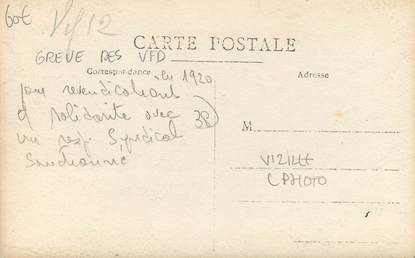 60€ Vif 12
CARTE POSTALE
GREVE DES VFD
Correspondance en 1920
Adresse
pour revendications
et solidarité avec
38
un resp. Syndical
Sanctionné
M
VIZILLE
CPHOTO